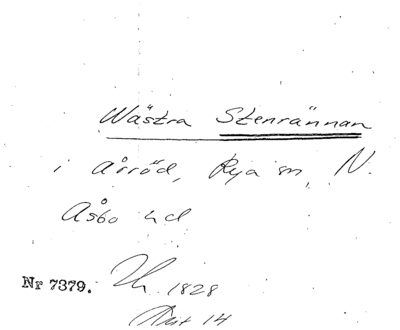 Wästra Stenrännan
i Årröd, Rya sn, N.
Åsbo hd
Nr 7379. 1828
Akt 14